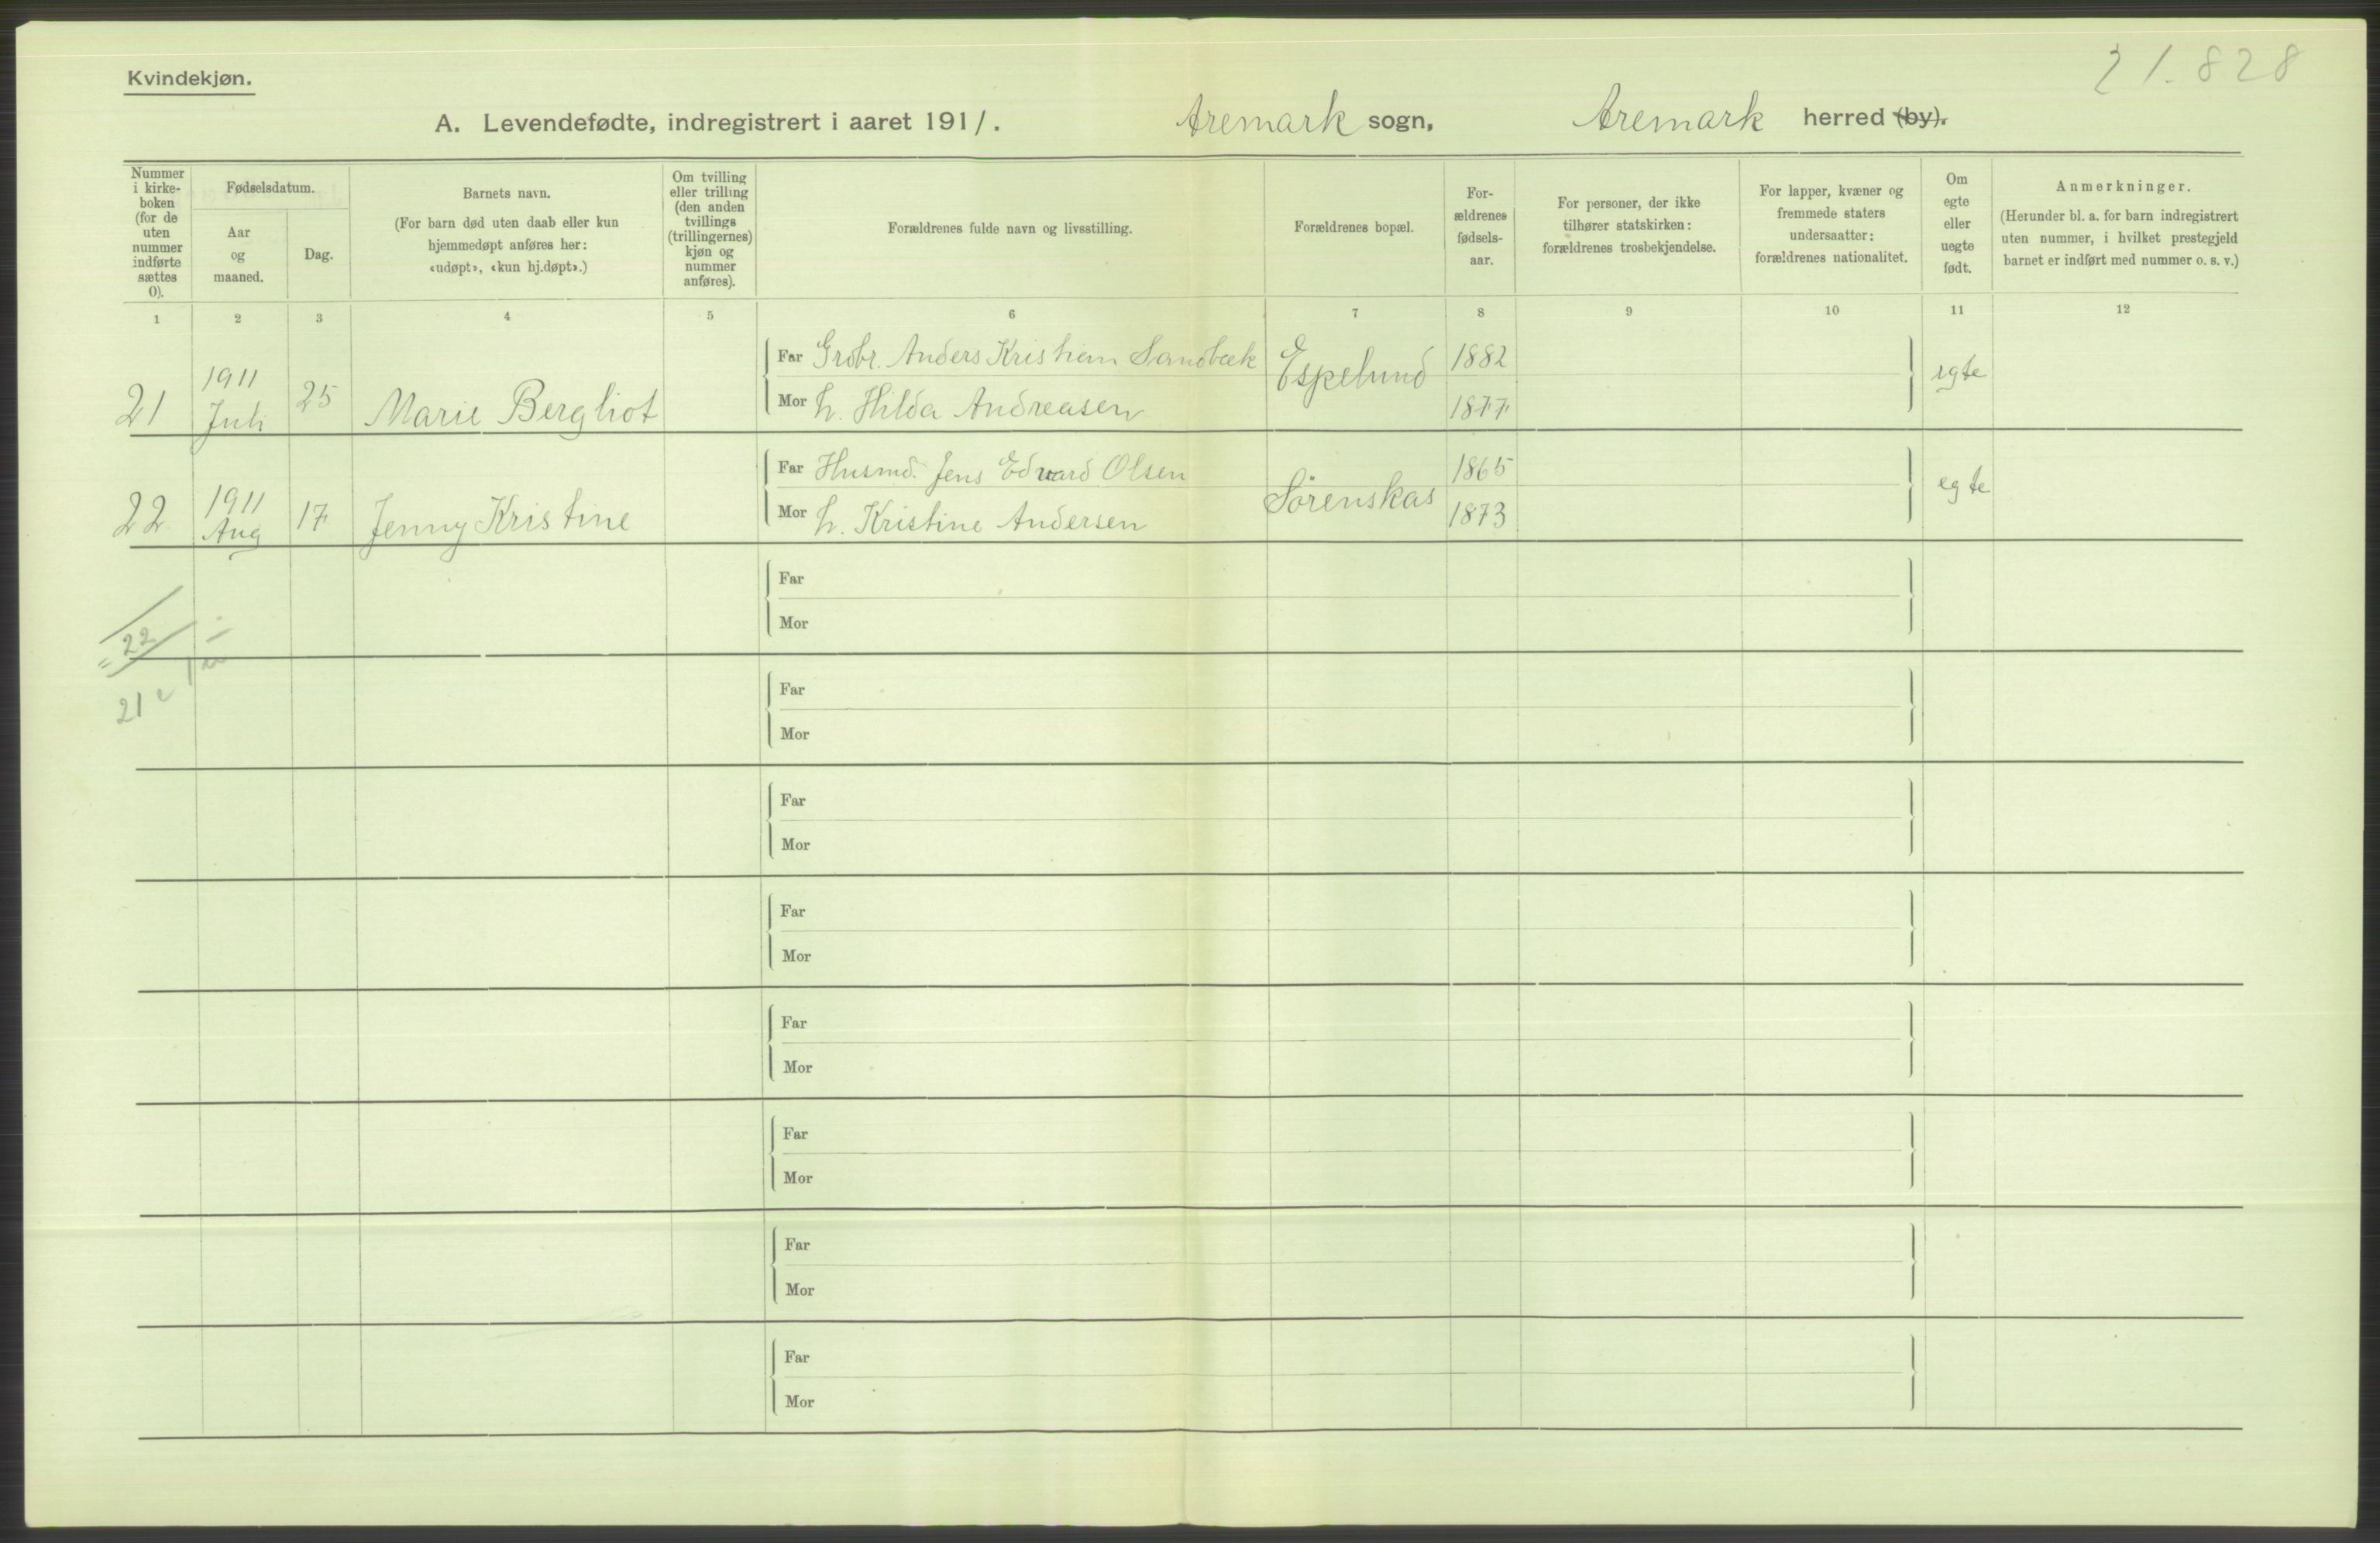 21.828
Kvindekjøn.
A. Levendefødte, indregistrert i aaret 1911. Aremark sogn, Aremark herred (by).
Nummer i kirke-boken (for de uten nummer indførte sættes 0).
Fødselsdatum.
Aar og maaned.
Dag.
Barnets navn.
(For barn død uten daab eller kun hjemmedøpt anføres her: «udøpt», «kun hj.døpt».)
Om tvilling eller trilling (den anden tvillings (trillingernes) kjøn og nummer anføres).
Forældrenes fulde navn og livsstilling.
Forældrenes bopæl.
For-ældrenes fødsels-aar.
For personer, der ikke tilhører statskirken: forældrenes trosbekjendelse.
For lapper, kvæner og fremmede staters undersaatter: forældrenes nationalitet.
Om egte eller uegte født.
Anmerkninger.
(Herunder bl. a. for barn indregistrert uten nummer, i hvilket prestegjeld barnet er indført med nummer o. s. v.)
1 2 3 4 5 6 7 8 9 10 11 12
21 1911 Juli 25 Marie Bergliot
Far Grobr. Anders Kristian Sandbæk Espelund 1882 egte
Mor h. Hilda Andreasen 1877
22 1911 Aug 17 Jenny Kristine
Far Husmd. Jens Edvard Olsen Sörenskas 1865 egte
Mor h. Kristine Andersen 1873
Far
Mor
22
21
Far
Mor
Far
Mor
Far
Mor
Far
Mor
Far
Mor
Far
Mor
Far
Mor